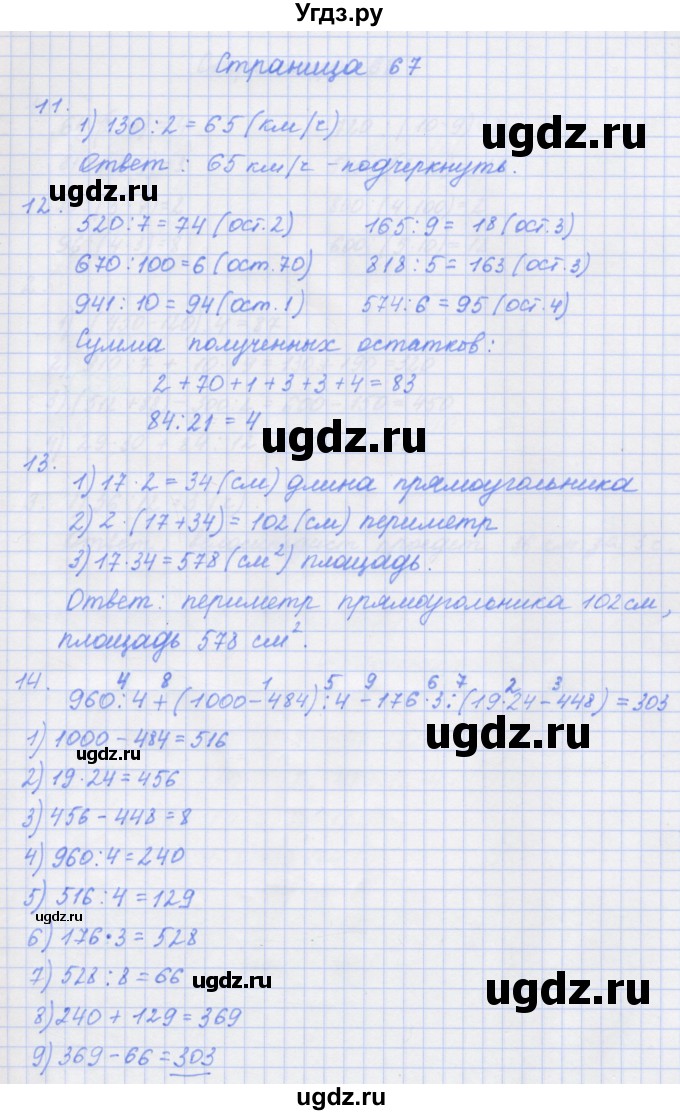 Угдз.ру
Страница 67
11.
1) 130 : 2 = 65 (км/ч)
Ответ : 65 км/ч - подчеркнуть.
12.
520 : 7 = 74 (ост. 2) 165 : 9 = 18 (ост. 3)
670 : 100 = 6 (ост. 70) 818 : 5 = 163 (ост. 3)
941 : 10 = 94 (ост. 1) 574 : 6 = 95 (ост. 4)
Сумма полученных остатков:
2 + 70 + 1 + 3 + 3 + 4 = 83
84 : 21 = 4
13.
1) 17 · 2 = 34 (см) длина прямоугольника
2) 2 · (17 + 34) = 102 (см) периметр
3) 17 · 34 = 578 (см²) площадь.
Ответ: периметр прямоугольника 102 см,
площадь 578 см².
4 8 1 5 9 6 7 2 3
14. 960 : 4 + (1000 - 484) : 4 - 176 · 3 : (19 · 24 - 448) = 303
1) 1000 - 484 = 516
2) 19 · 24 = 456
3) 456 - 448 = 8
4) 960 : 4 = 240
5) 516 : 4 = 129
6) 176 · 3 = 528
7) 528 : 8 = 66
8) 240 + 129 = 369
9) 369 - 66 = 303
ugdz.ru
ugdz.ru
ugdz.ru
ugdz.ru
ugdz.ru
ugdz.ru
ugdz.ru
ugdz.ru
ugdz.ru
ugdz.ru
ugdz.ru